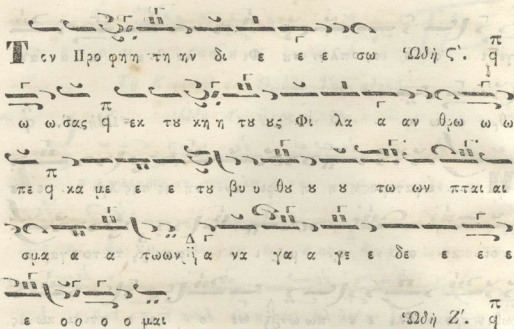 Τον Προ φηη τη ην δι ε ε ε σω Ὠδὴ Ϛ'. π
ω ω.σας π ϥ εκ τȣ κη η τȣ ȣς Φι λα α αν θρω ω ω
πε π ϥ κα με ε ε τȣ βυ υ θȣ ȣ ȣ τω ων πται αι
σμα α α τωων Δ α να γα α γε ε δε ε ε ε
ε ο ο ο ο μαι Ὠδὴ Ζ'. π ϥ